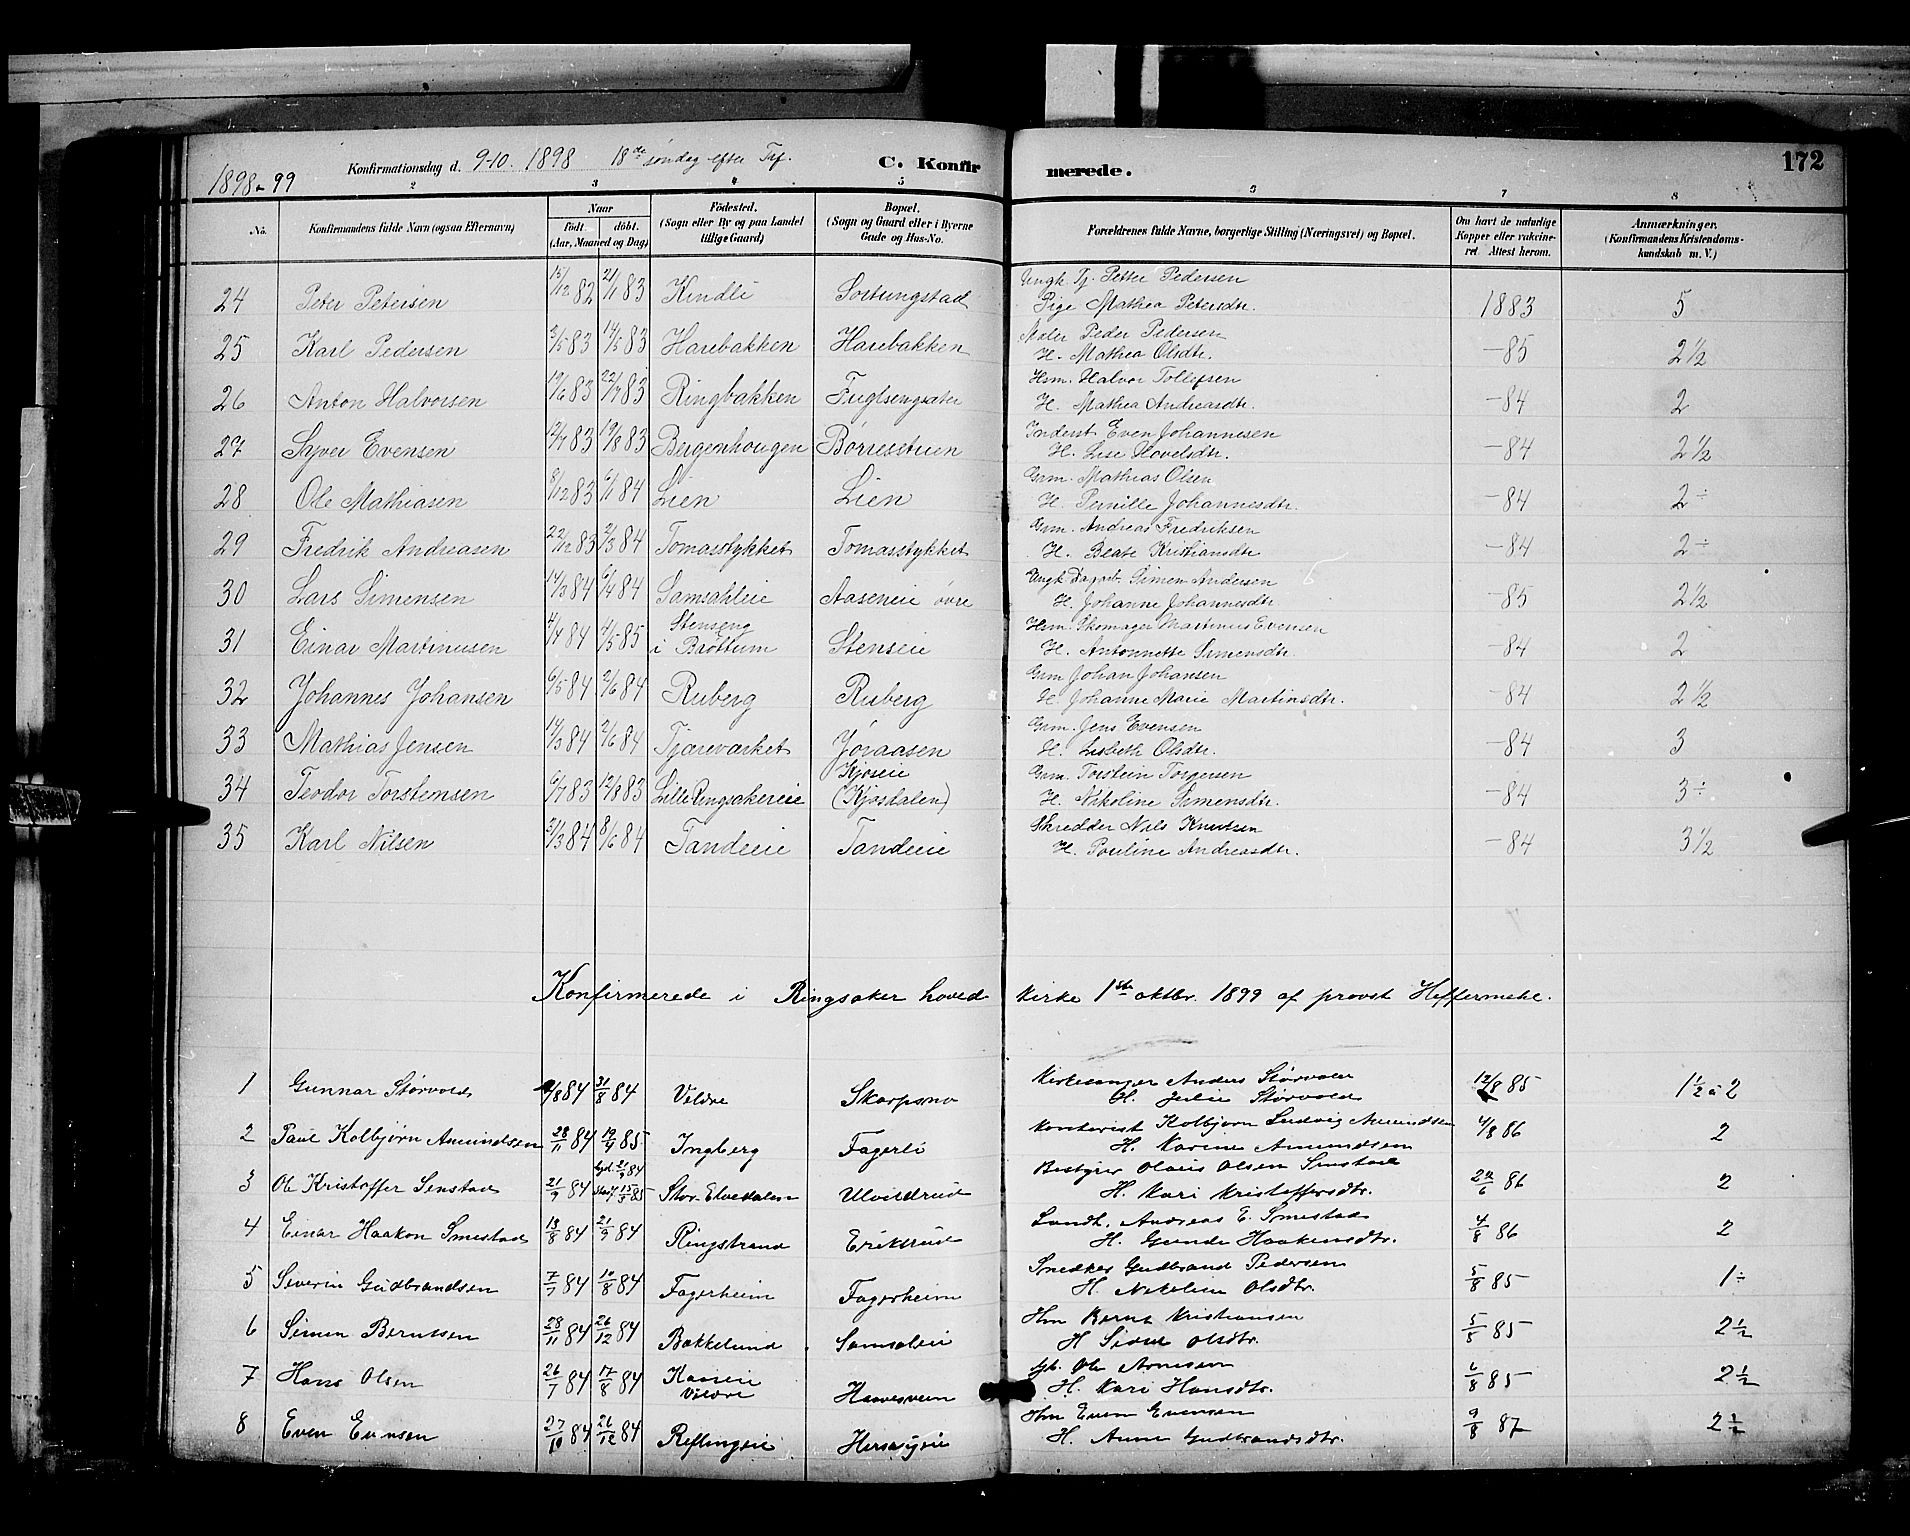 1898-99 Konfirmationsdag d. 9-10. 1898 18de søndag efter Tr. C. Konfirmerede. 172
2 3 4 5 6 7 8
No. Konfirmandens fulde Navn (ogsaa Efternavn) Naar født døbt (Aar, Maaned og Dag) Fødested. (Sogn eller By og paa Landet tillige Gaard) Bopæl. (Sogn og Gaard eller i Byerne Gade og Hus-No. Forældrenes fulde Navne, borgerlige Stilling (Næringsvei) og Bopæl. Om havt de naturlige Kopper eller vakcineret Attest herom. Anmærkninger. (Konfirmandens Kristendomskundskab m. V.)
24 Peter Petersen 15/12 82 21/1 83 Kindli Sortungstad Ungk. Tj. Petter Pedersen
Pige Mathea Petersdtr. 1883 5
25 Karl Pedersen 3/5 83 14/5 83 Harebakken Harebakken Maler Peder Pedersen
H. Mathea Olsdtr. -85 2 1/2
26 Anton Halvorsen 19/6 83 22/7 83 Ringbakken Fuglsengsæter Hsm. Halvor Tollefsen
H. Mathea Andreasdtr. -84 2
27 Syver Evensen 12/7 83 19/8 83 Bergenhougen Børresstuen Inderst Even Johannesen
H. Lise Hovelsdtr. -84 2 1/2
28 Ole Mathiasen 8/12 83 6/1 84 Lien Lien Grm. Mathias Olsen
H. Pernille Johannesdtr. -84 2÷
29 Fredrik Andreasen 22/12 83 2/3 84 Tomasstykket Tomasstykket Grm. Andreas Fredriksen
H. Beate Kristiansdtr -84 2÷
30 Lars Simensen 14/3 84 6/4 84 Samsahleie Aaseneie øvre Ungk. Simen Andersen
H. Johanne Johannesdtr. -85 2 1/2
31 Einar Martinusen 4/4 84 4/5 85 Stenseng i Brøttum Stenseie Hsm. Skomager Martinus Evensen
H. Antonnette Simensdtr. -84 2
32 Johannes Johansen 6/5 84 2/6 84 Ruberg Ruberg Grm Johan Johansen
H. Johanne Marie Martinsdtr. -84 2 1/2
33 Mathias Jensen 14/3 84 2/6 84 Tjæreværket Jøraasen Grm. Jens Evensen
H. Lisbeth Olsdtr. -84 3
34 Teodor Torstensen 6/7 83 12/8 83 Lille Ringsakereie Kjoseie (Kjosdalen) Grm. Torstein Torgersen
H. Nikoline Simensdtr. -84 3÷
35 Karl Nilsen 31/3 84 8/6 84 Tandeeie Tandeeie Skredder Nils Knutsen
H. Pouline Andreasdtr. -84 3 1/2
Konfirmerede i Ringsaker hovedkirke 1ste oktbr. 1899 af provst Heffermehl.
1 Gunnar Størvold /8 84 31/8 84 Veldre Skarpsno Kirkesanger Anders Størvold
H. Julie Størvold 12/8 85 1 1/2 à 2
2 Paul Kolbjørn Amundsen 28/11 84 19/4 85 Ingberg Fagerli Kontorist Kolbjørn Ludvig Amundsen
H. Karine Amundsen 4/8 86 2
3 Ole Kristoffer Senstad 21/9 84 21/9 84 15/3 85 Stor-Elvedalen Ulvildrud Bestyrer Olaus Olsen Senstad
H. Kari Kristoffersdtr. 22/6 86 2
4 Einar Haakon Smestad 13/8 84 21/9 84 Ringstrand Erikstrud Landh. Andreas E. Smestad
H. Gunda Haakensdtr. 4/8 86 2
5 Severin Gudbrandsen 7/7 84 10/8 84 Fagerheim Fagerheim Snedker Gudbrand Pedersen
H. Nikoline Olsdtr. 5/8 85 1÷
6 Simen Berntsen 28/11 84 26/12 84 Bakkelund Samsaleie Hm Bernt Kristiansen
H Sidsel Olsdtr. 5/5 85 2 1/2
7 Hans Olsen 26/7 84 17/8 84 Kaaseie Veldre Ole Arnesen
H. Kari Hansdtr. 6/8 85 2 1/2
8 Even Evensen 27/10 84 26/12 84 Reflingseie Hm Even Evensen
H. Anne Gudbrandsdtr. 9/8 87 2 1/2